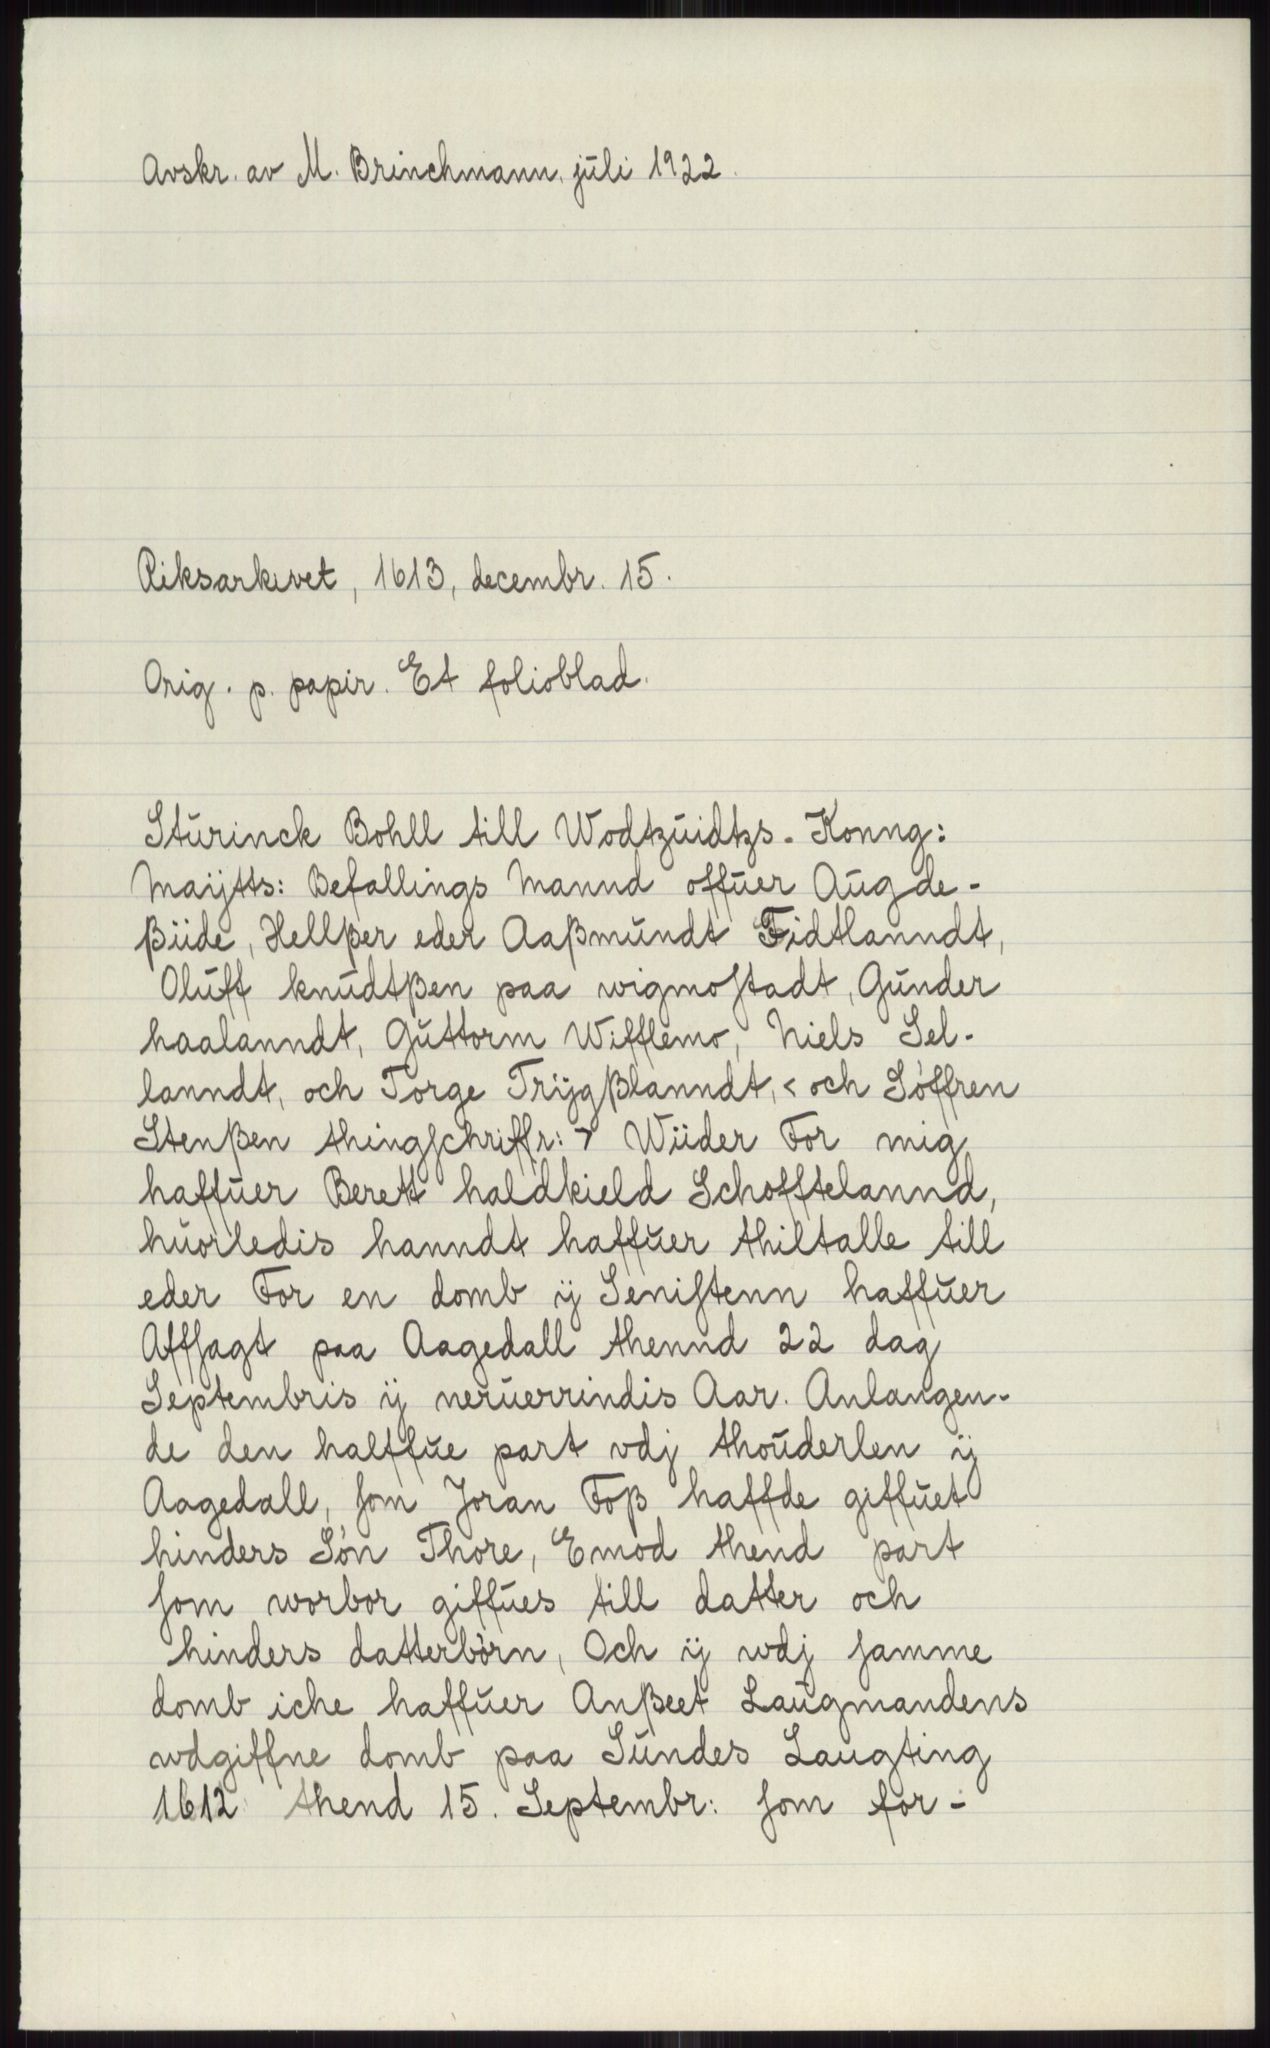 Avskr. av M. Brinchmann, juli 1922.
Riksarkivet, 1613, decembr. 15.
Orig. p. papir. Et folioblad.
Sturinck Bohll till Wodtzuidtzs. Konng:
Maÿtts: Befallings Mannd offuer Augde-
ßüde, Hellßer eder Aaßmundt Fidtlanndt,
Oluff knudtßen paa wigmostadt, Gunder
haalanndt, Guttorm Wifflemo, Niels Sel-
lanndt, och Torge Trÿgßlanndt, < och Søffren
Stenßen thingschriffr: > Wüder For mig
haffuer Berett haldkield Schofftelannd,
huorledis hanndt haffuer thiltalle till
eder For en domb ÿ Senistenn haffuer
Affsagt paa Aagedall thennd 22 dag
Septembris ÿ neruerrindis Aar. Anlangen-
de den halffue part vdj thouderlen ÿ
Aagedall, som Joran Foß haffde giffuet
hinders Søn Thore, Emod thend part
som worbor giffues till datter och
hinders datterbørn, Och ÿ wdj samme
domb iche haffuer Anßeet Laugmandens
wdgiffne domb paa Sundes Laugting
1612 thend 15. Septembr: som for-